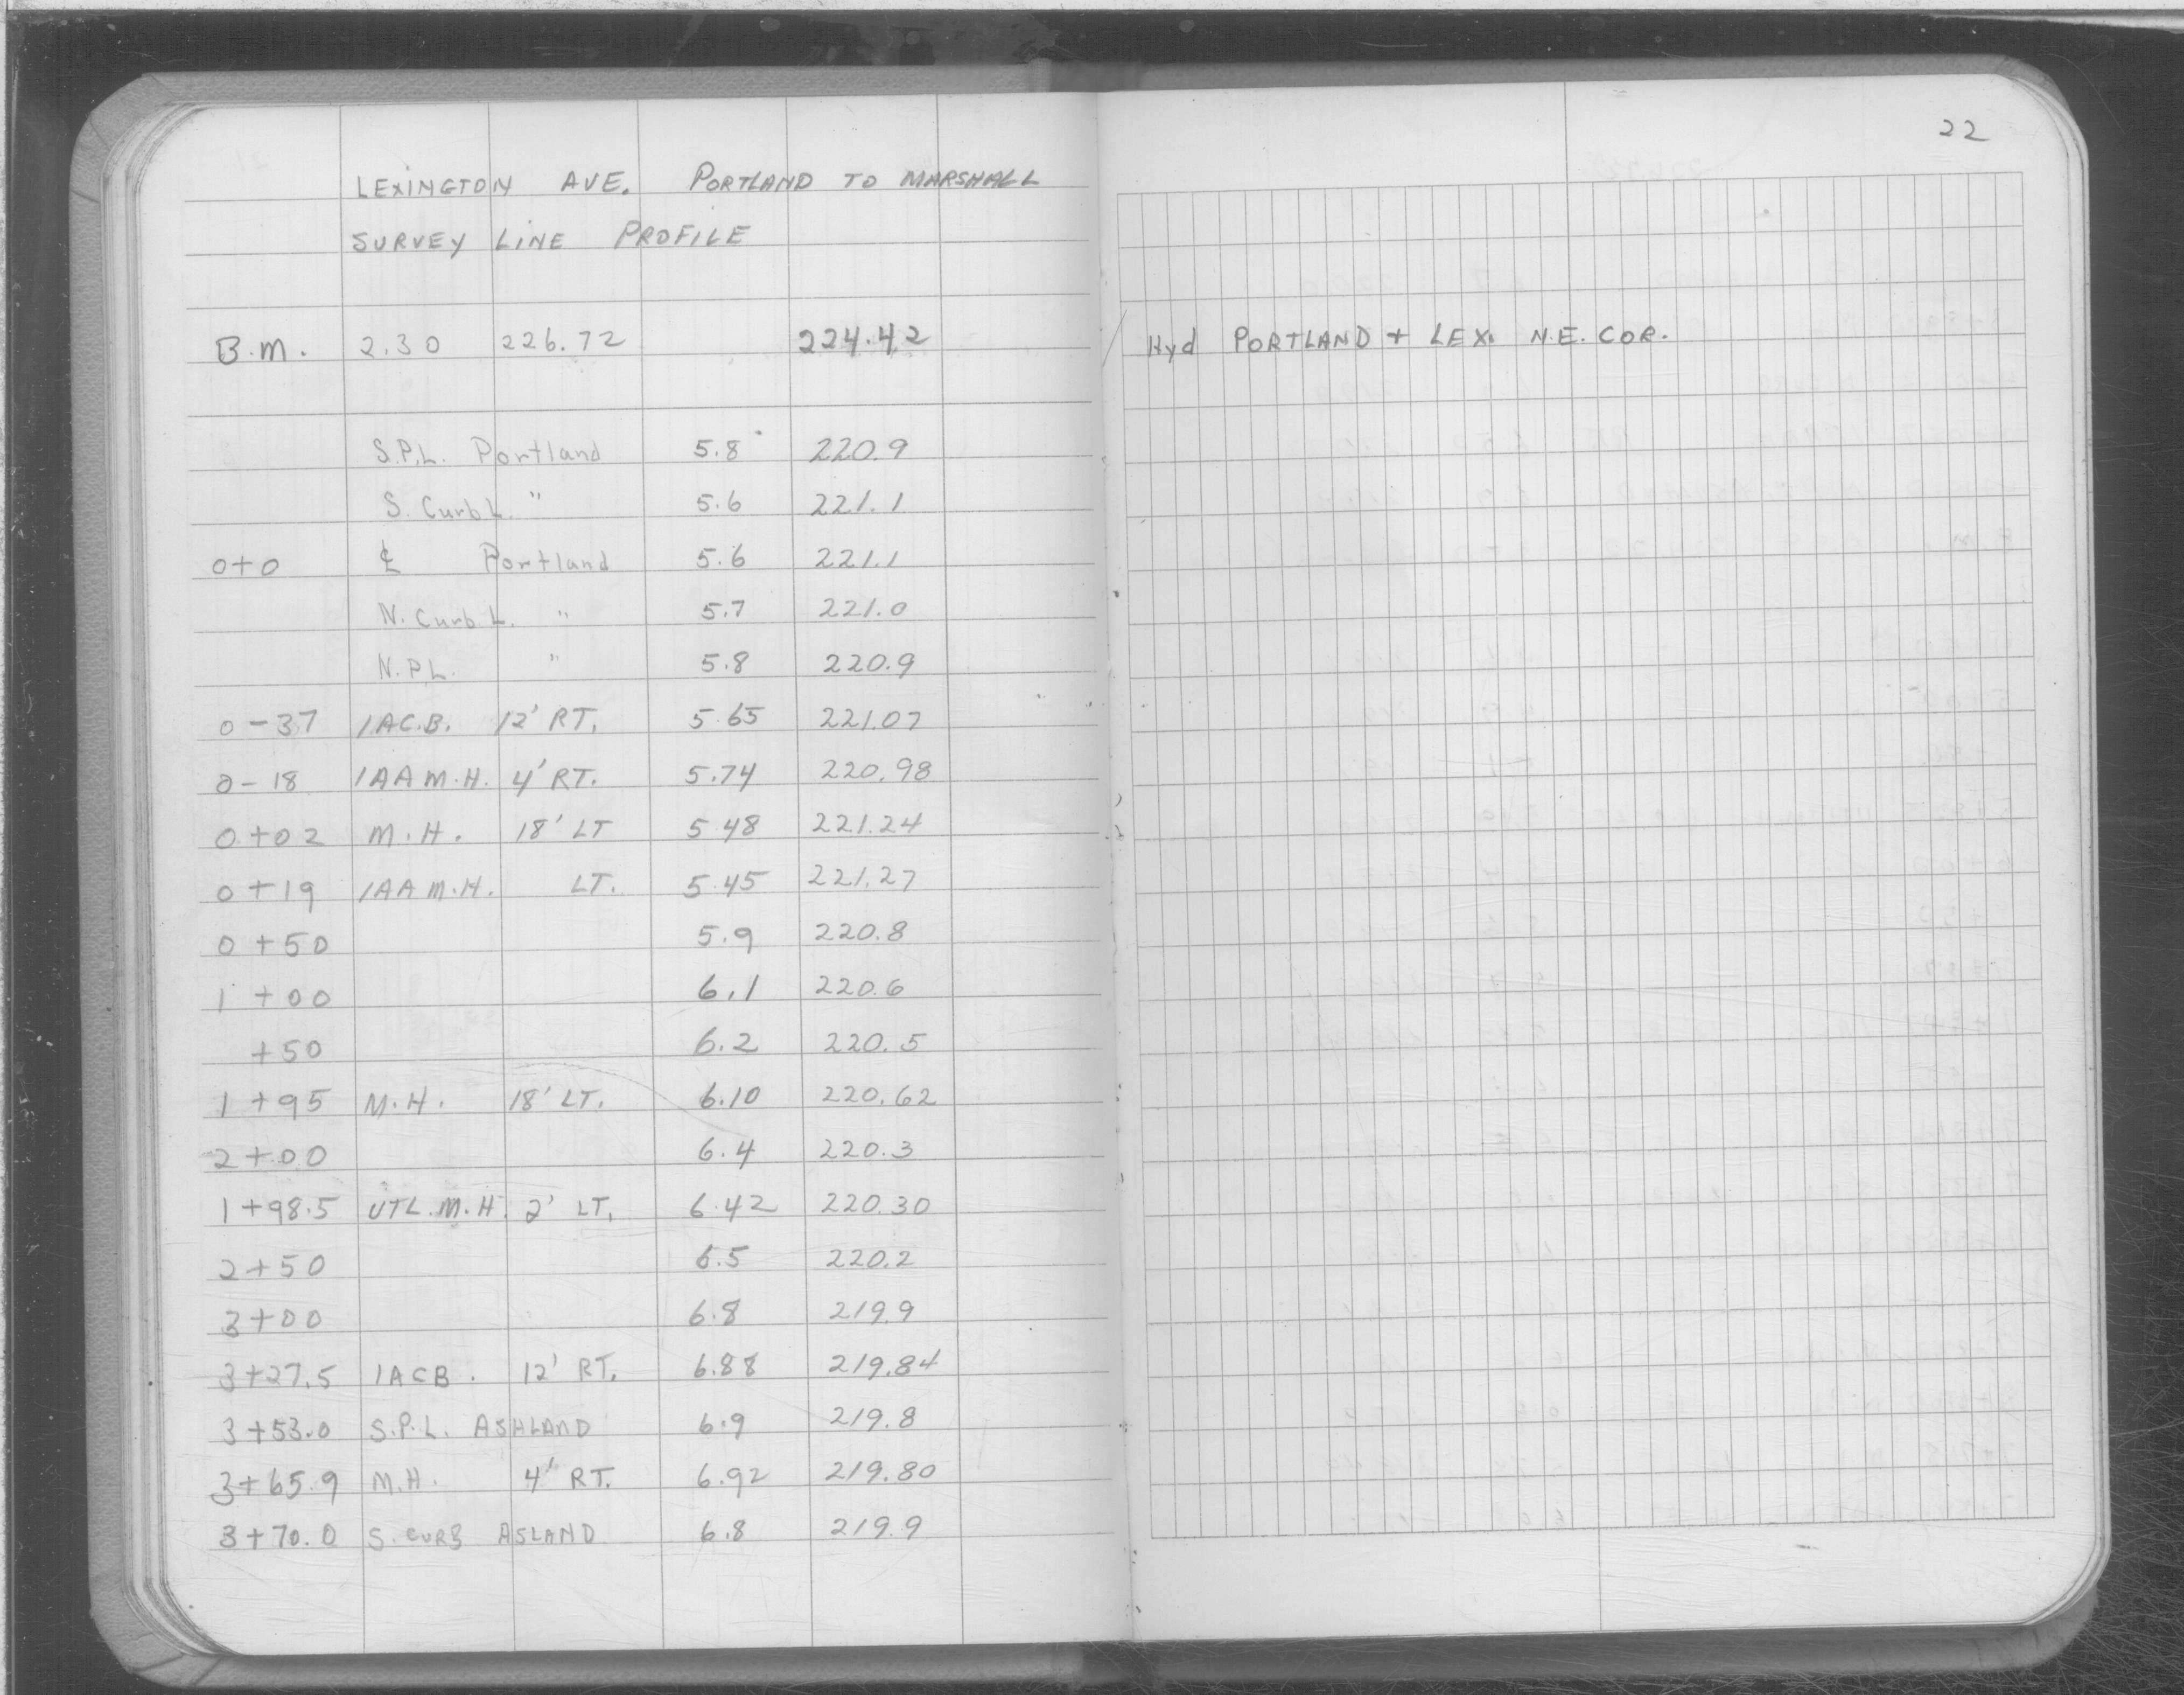 22
LEXINGTON AVE. PORTLAND TO MARSHALL
SURVEY LINE PROFILE
B.M. 2.30 226.72 224.42 Hyd PORTLAND + LEX. N.E. COR.
S.P.L. Portland 5.8 220.9
S. Curb L. " 5.6 221.1
0+0 ℄ Portland 5.6 221.1
N. Curb L. " 5.7 221.0
N.P.L. " 5.8 220.9
0-37 1AC.B. 12' RT. 5.65 221.07
0-18 1AA M.H. 4' RT. 5.74 220.98
0+02 M.H. 18' LT 5.48 221.24
0+19 1AA M.H. LT. 5.45 221.27
0+50 5.9 220.8
1+00 6.1 220.6
+50 6.2 220.5
1+95 M.H. 18' LT. 6.10 220.62
2+00 6.4 220.3
1+98.5 UTL.M.H. 2' LT. 6.42 220.30
2+50 6.5 220.2
3+00 6.8 219.9
3+27.5 1ACB. 12' RT. 6.88 219.84
3+53.0 S.P.L. ASHLAND 6.9 219.8
3+65.9 M.H. 4' RT. 6.92 219.80
3+70.0 S. CURB ASLAND 6.8 219.9